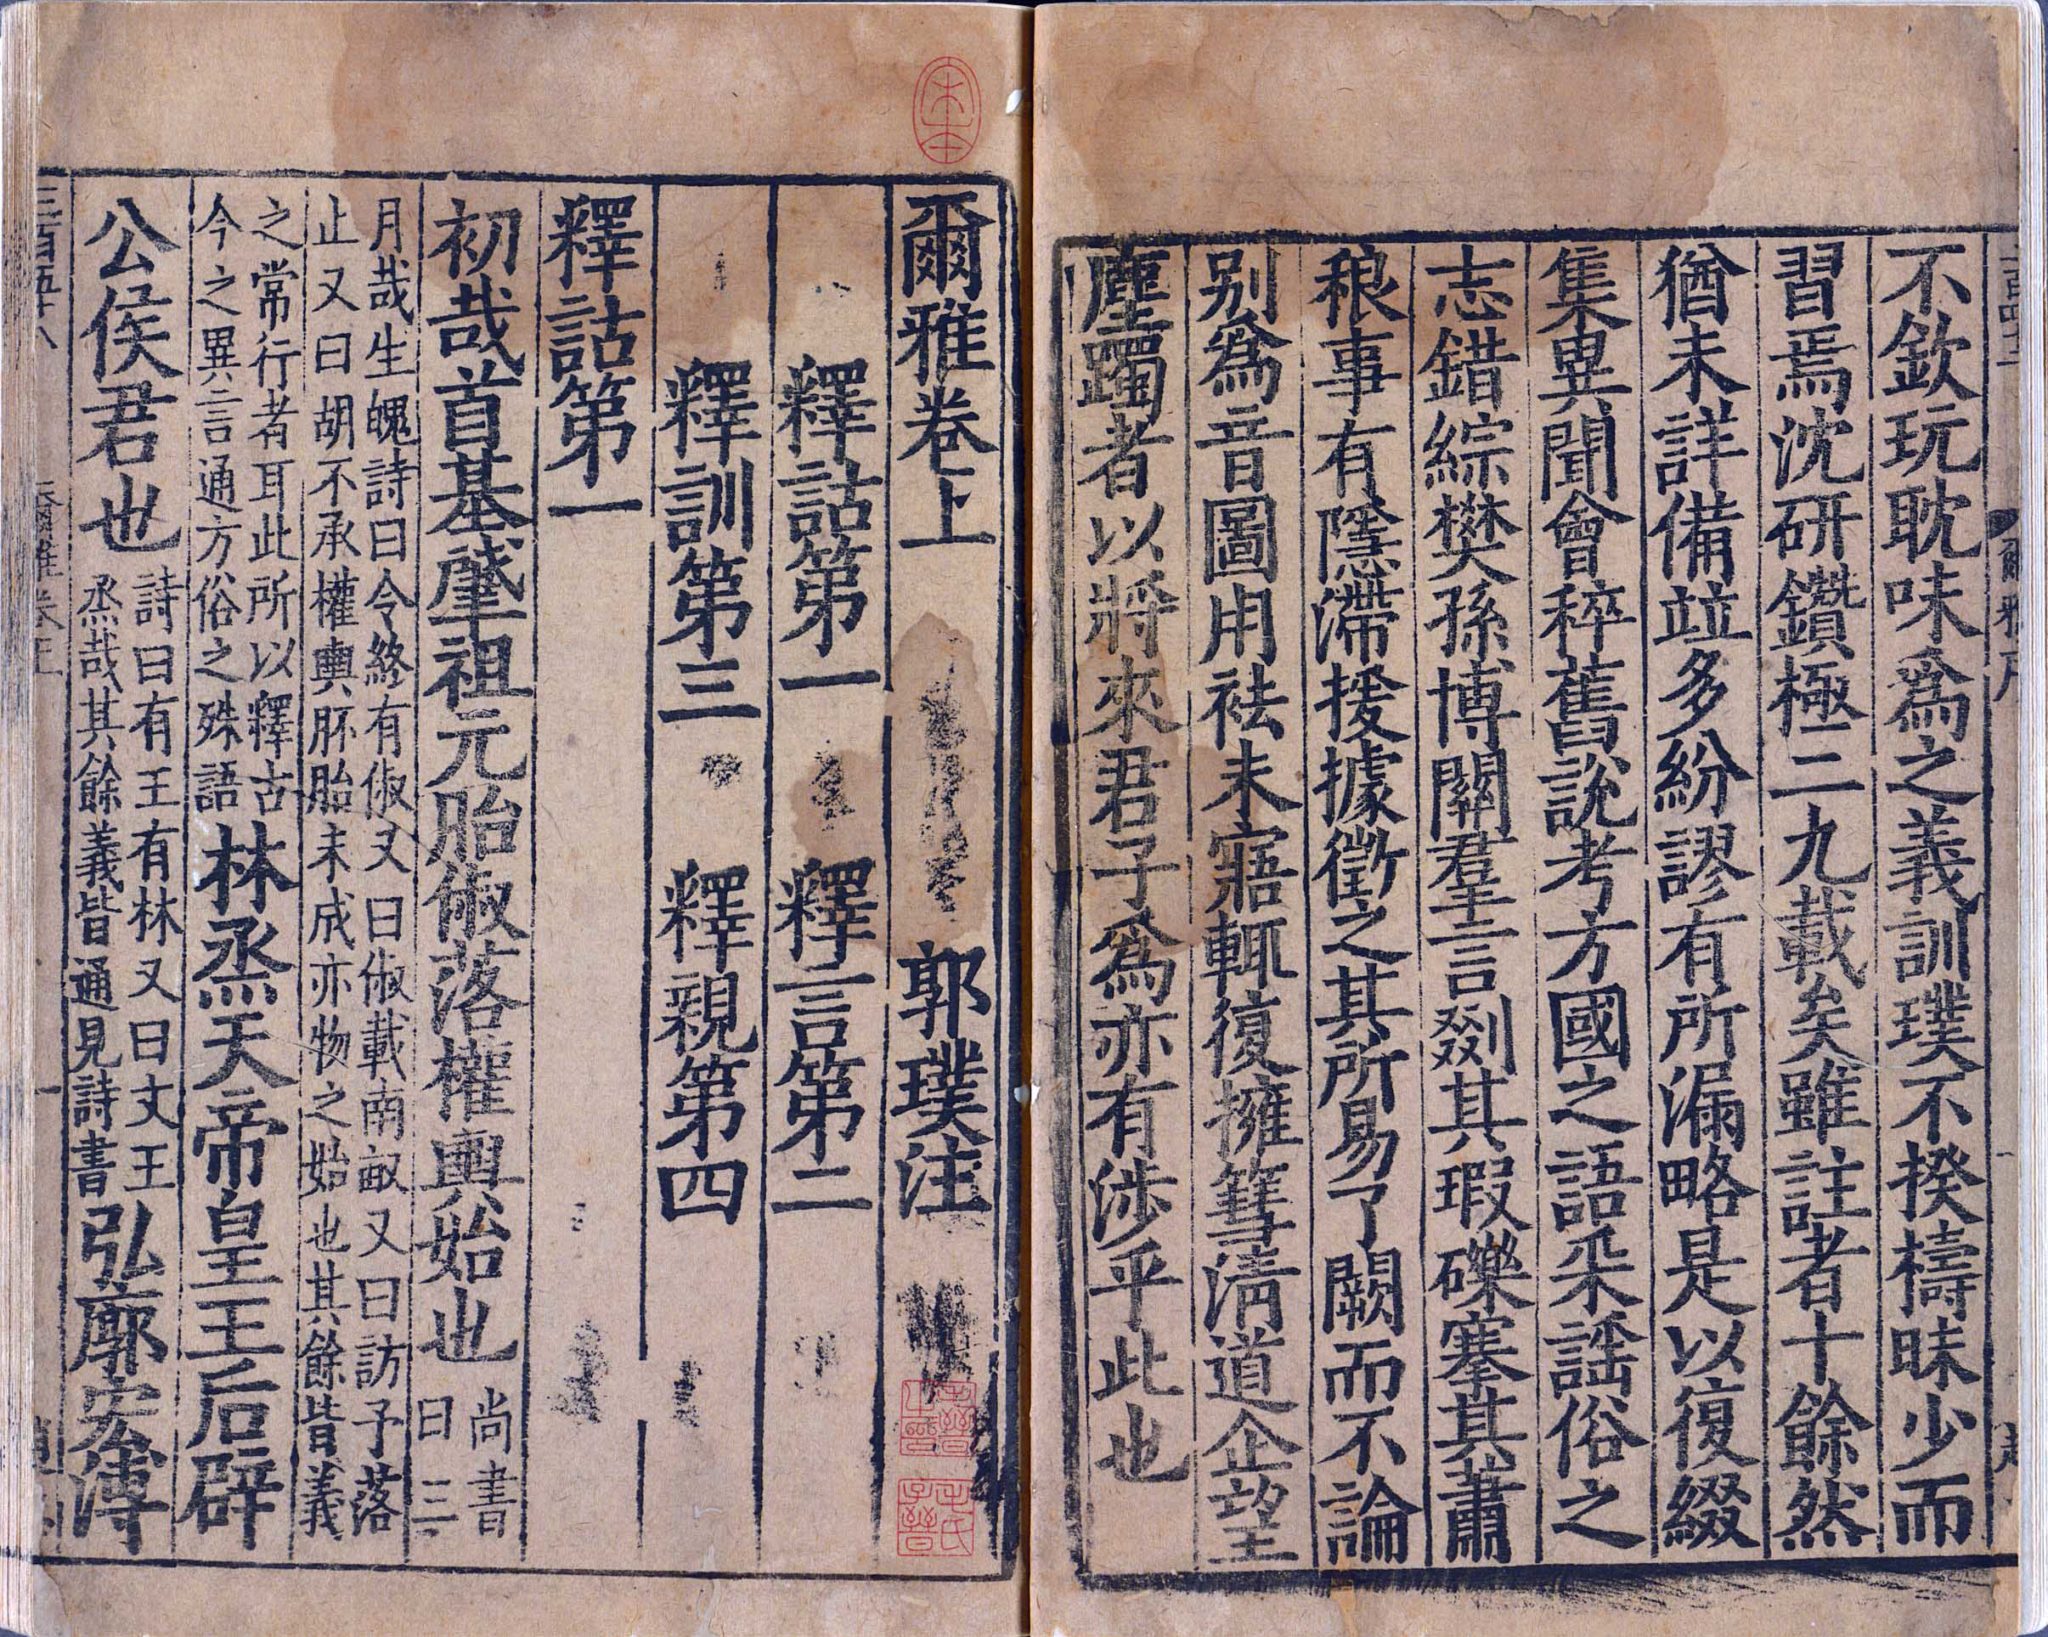 不欽玩耽味爲之義訓璞不揆檮昧少而
習焉沈研鑽極二九載矣雖註者十餘然
猶未詳備竝多紛謬有所漏略是以復綴
集異聞會稡舊說考方國之語采謡俗之
志錯綜樊孫博關羣言剟其瑕礫搴其蕭
稂事有隱滯援據徵之其所易了闕而不論
别爲音圖用袪未寤輒復擁篲清道企望
塵躅者以將來君子爲亦有涉乎此也
爾雅卷上 郭璞注
釋詁第一 釋言第二
釋訓第三 釋親第四
釋詁第一
初哉首基肇祖元胎俶落權輿始也 尚書
曰三
月哉生魄詩曰令終有俶又曰俶載南畝又曰訪予落
止又曰胡不承權輿胚胎未成亦物之始也其餘皆義
之常行者耳此所以釋古
今之異言通方俗之殊語 林烝天帝皇王后辟
公侯君也 詩曰有王有林又曰文王
烝哉其餘義皆通見詩書 弘廓宏溥